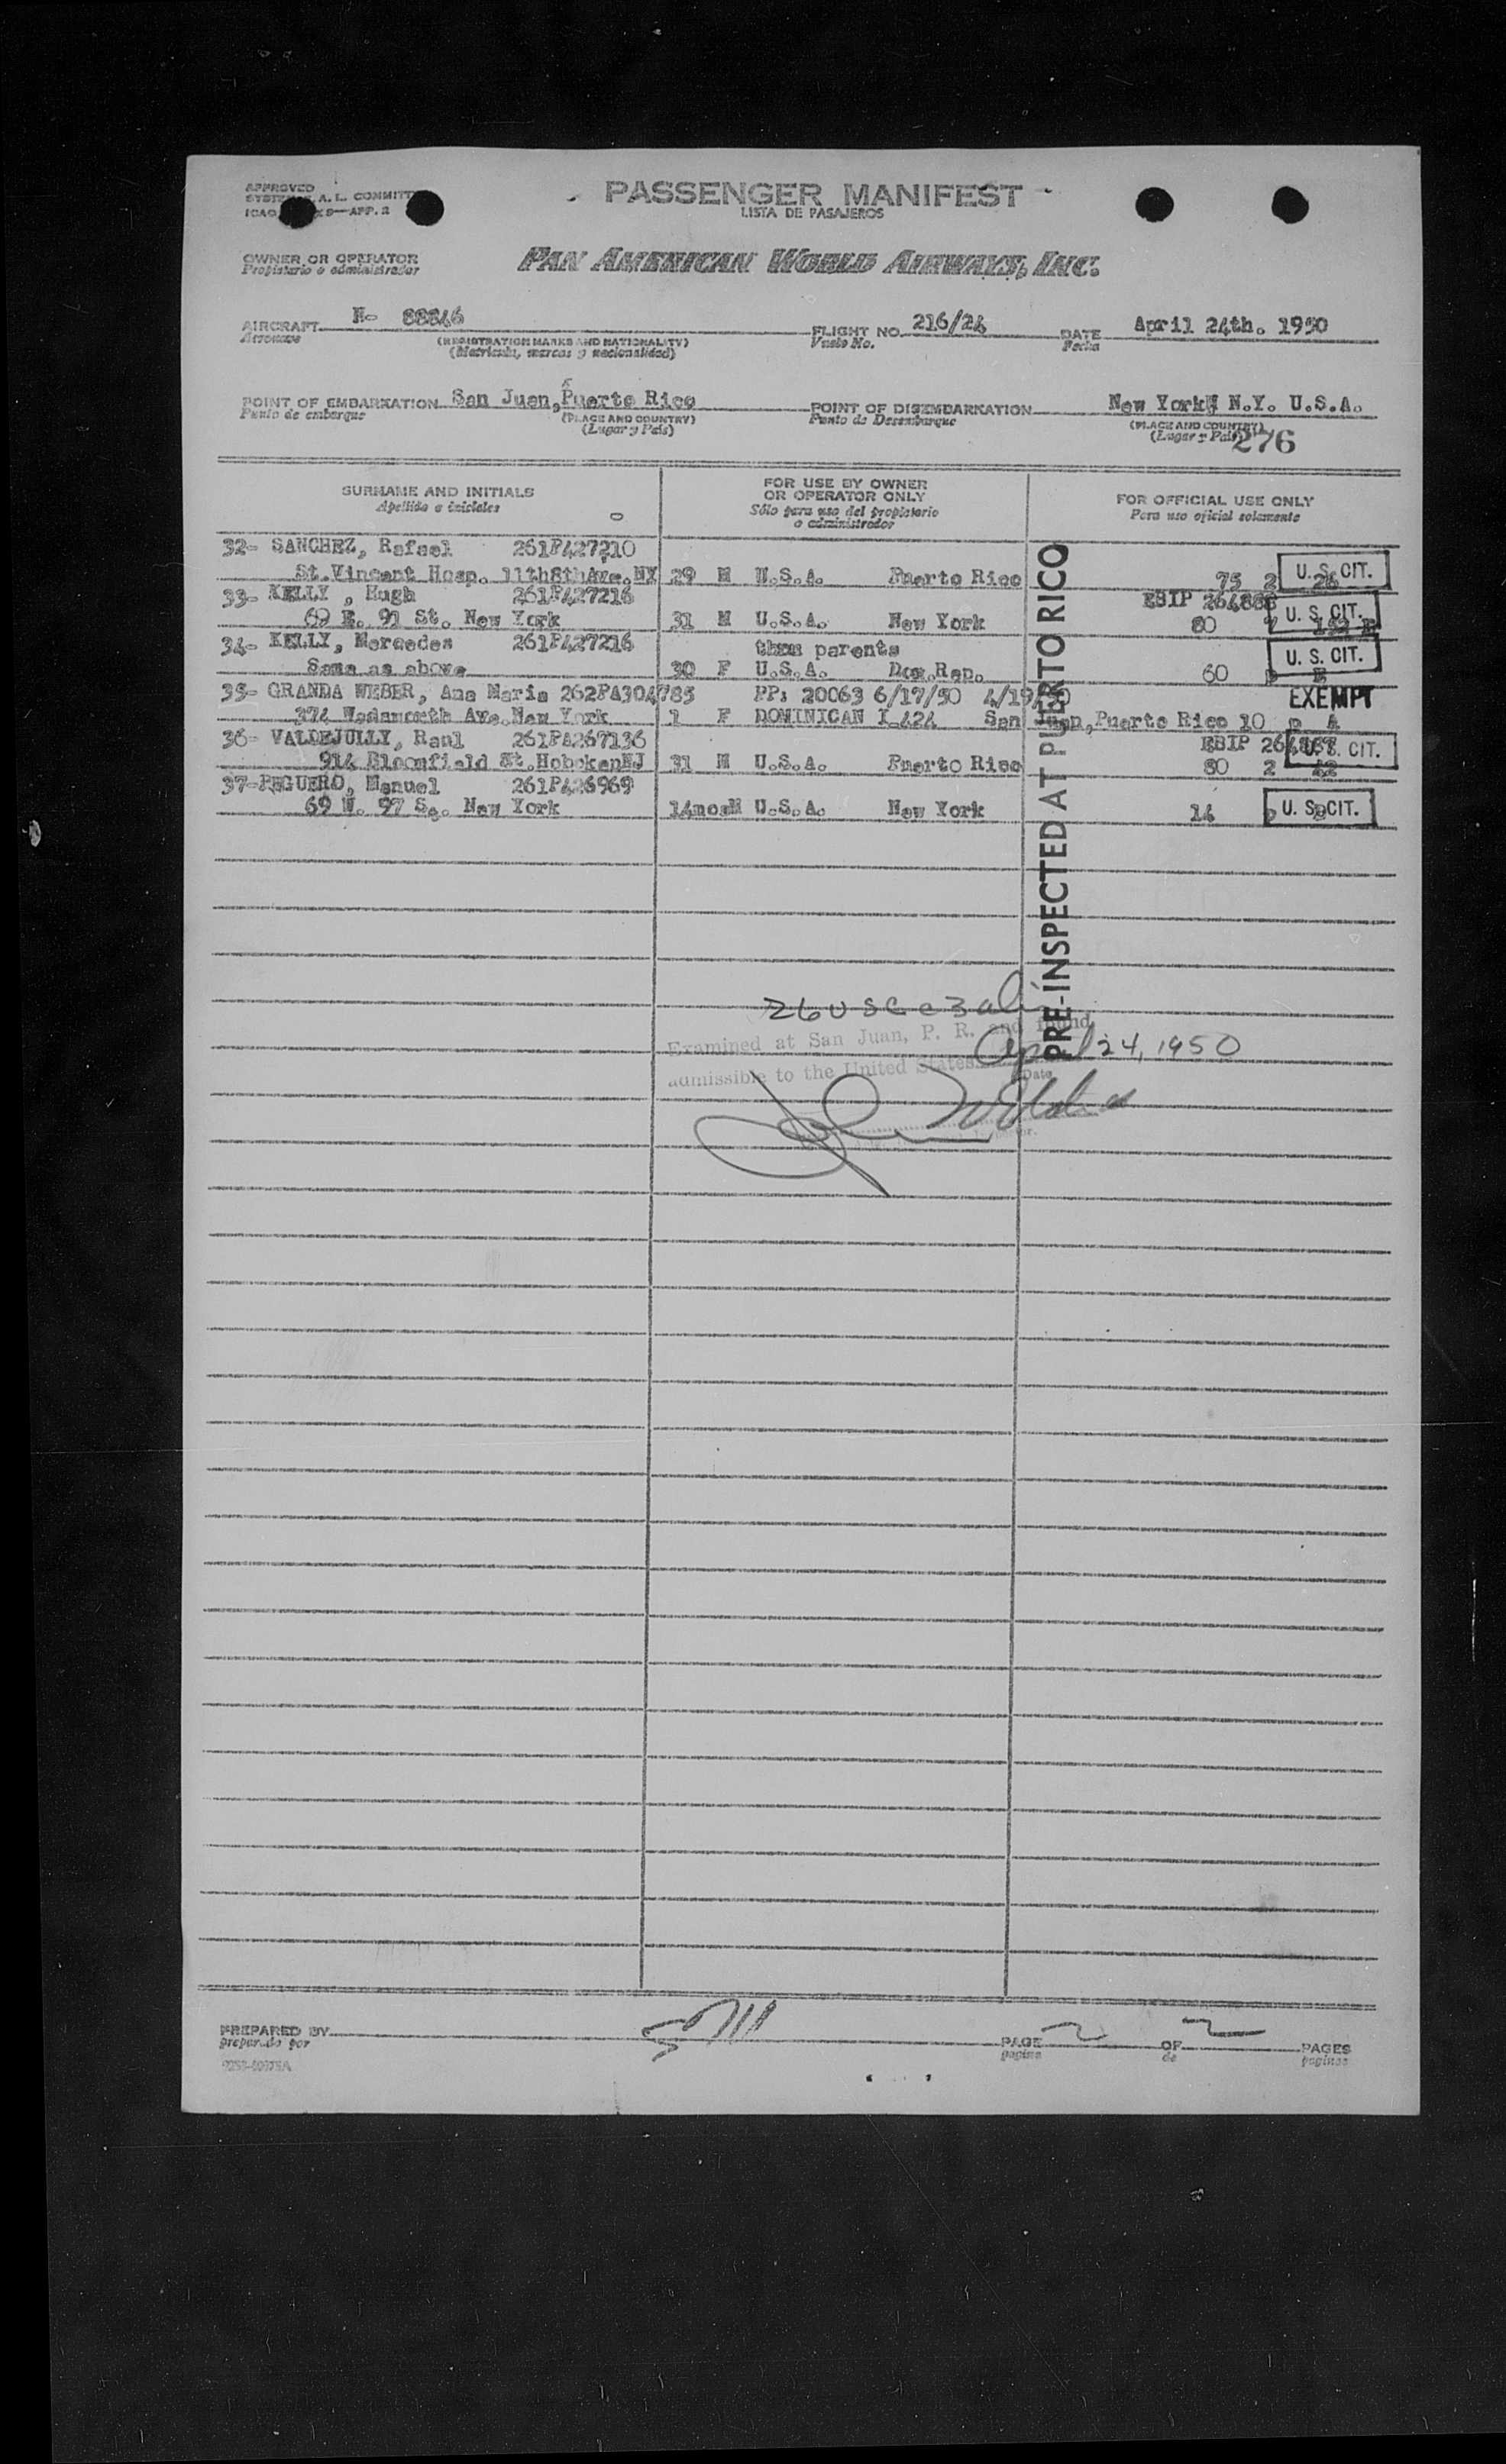 APPROVED
PASSENGER MANIFEST
LISTA DE PASAJEROS
OWNER OR OPERATOR
Propietario o administrador
PAN AMERICAN WORLD AIRWAYS, INC.
AIRCRAFT N- 88846 FLIGHT NO. 216/24 DATE April 24th. 1950
Aeronave (REGISTRATION MARKS AND NATIONALITY) Vuelo No. Fecha
(Matricula, marcas y nacionalidad)
POINT OF EMBARKATION San Juan, Puerto Rico POINT OF DISEMBARKATION New York N.Y. U.S.A.
Punto de embarque (PLACE AND COUNTRY) Punto de Desembarque (PLACE AND COUNTRY)
(Lugar y Pais) (Lugar y Pais) 276
SURNAME AND INITIALS FOR USE BY OWNER OR OPERATOR ONLY FOR OFFICIAL USE ONLY
Apellido e iniciales Sólo para uso del propietario o administrador Para uso oficial solamente
32- SANCHEZ, Rafael 261P427210
St.Vincent Hosp. 11th8thAve.NY 29 M U.S.A. Puerto Rico 75 2 26 U. S. CIT.
33- KELLY , Hugh 261P427216 EBIP
69 E. 91 St. New York 31 M U.S.A. New York 80 U. S. CIT.
34- KELLY, Mercedes 261P427216 thru parents
Same as above 30 F U.S.A. Dom.Rep. 60 U. S. CIT.
35- GRANDA WEBER, Ana Maria 262PA304785 PP: 20063 6/17/50 EXEMPT
374 Wadsworth Ave.New York 1 F DOMINICAN I-424 San Juan,Puerto Rico 10 p A
36- VALDEJULLY, Raul 261PA267136 EBIP
914 Bloomfield St.HobokenNJ 31 M U.S.A. Puerto Rico 80 2 22 U. S. CIT.
37-PEGUERO, Manuel 261P426969
69 W. 97 St. New York 14mosM U.S.A. New York 14 U. S. CIT.
PRE-INSPECTED AT PUERTO RICO
Examined at San Juan, P. R. and found
April 24, 1950
admissible to the United States
Date
PREPARED BY PAGE 2 OF 2 PAGES
preparado por pagina de paginas